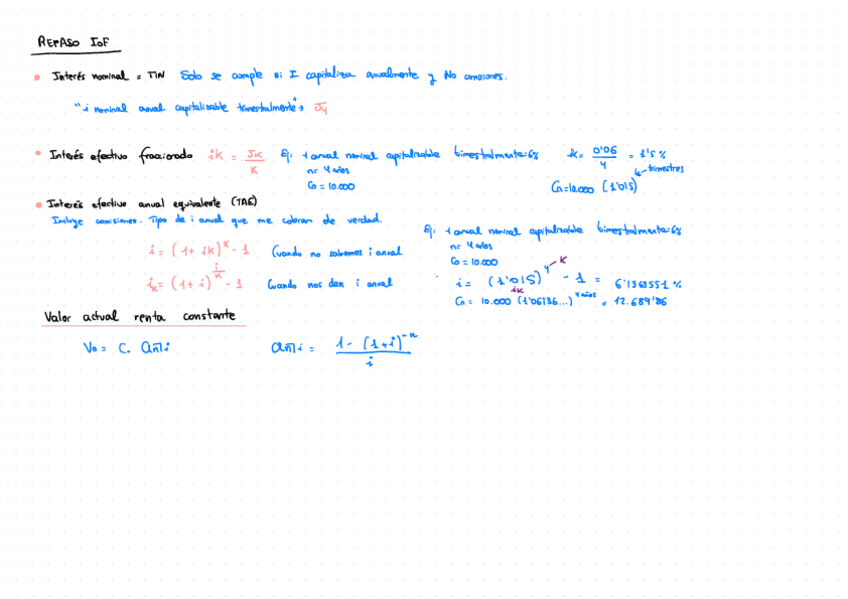 REPASO IOF
Interés nominal = TIN Solo se cumple si I capitaliza anualmente y No comisiones.
"i nominal anual capitalizable trimestralmente" → J4
Interés efectivo fraccionado iK = JK / K
Ej: i anual nominal capitalizable bimestralmente = 6%
n = 4 años
C0 = 10.000
iK = 0'06 / 4 = 1'5 %
↳ trimestres
Cn = 10.000 (1'015)
Interés efectivo anual equivalente (TAE)
Incluye comisiones. Tipo de i anual que me cobran de verdad.
i = (1 + iK)^K - 1 Cuando no sabemos i anual
iK = (1 + i)^(1/K) - 1 Cuando nos dan i anual
Ej: i anual nominal capitalizable bimestralmente = 6%
n = 4 años
C0 = 10.000
i = (1'015)^4 - 1 = 6'1363551 %
K
iK
Cn = 10.000 (1'06136...)^4 años = 12.689'86
Valor actual renta constante
V0 = C. an̄|i
an̄|i = 1 - (1+i)^-n / i